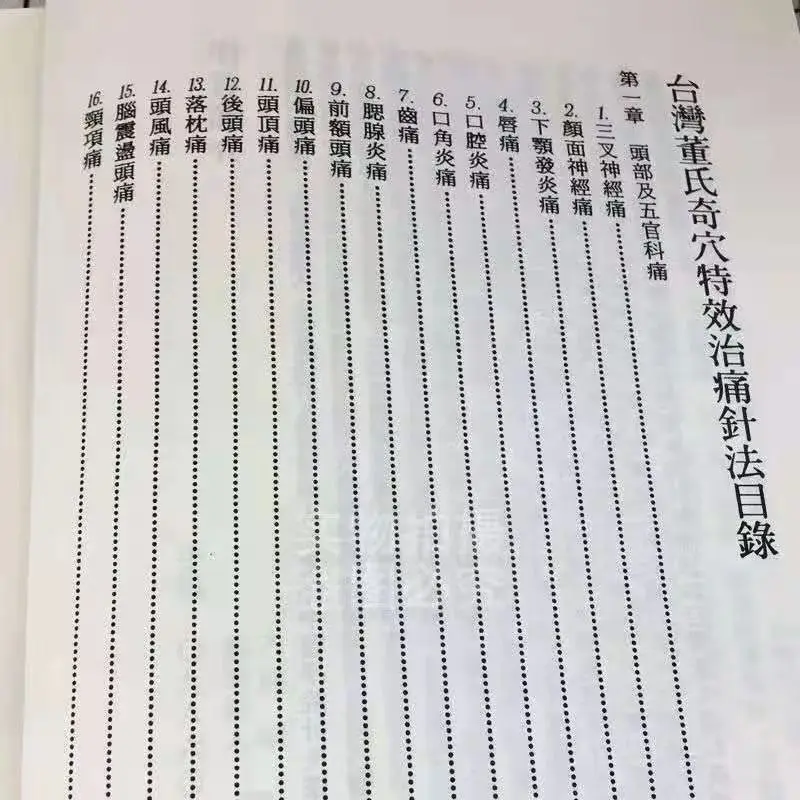 台灣董氏奇穴特效治痛針法目錄
第一章 頭部及五官科痛
1.三叉神經痛
2.顏面神經痛
3.下顎發炎痛
4.唇痛
5.口腔炎痛
6.口角炎痛
7.齒痛
8.腮腺炎痛
9.前額頭痛
10.偏頭痛
11.頭頂痛
12.後頭痛
13.落枕痛
14.頭風痛
15.腦震盪頭痛
16.頸項痛